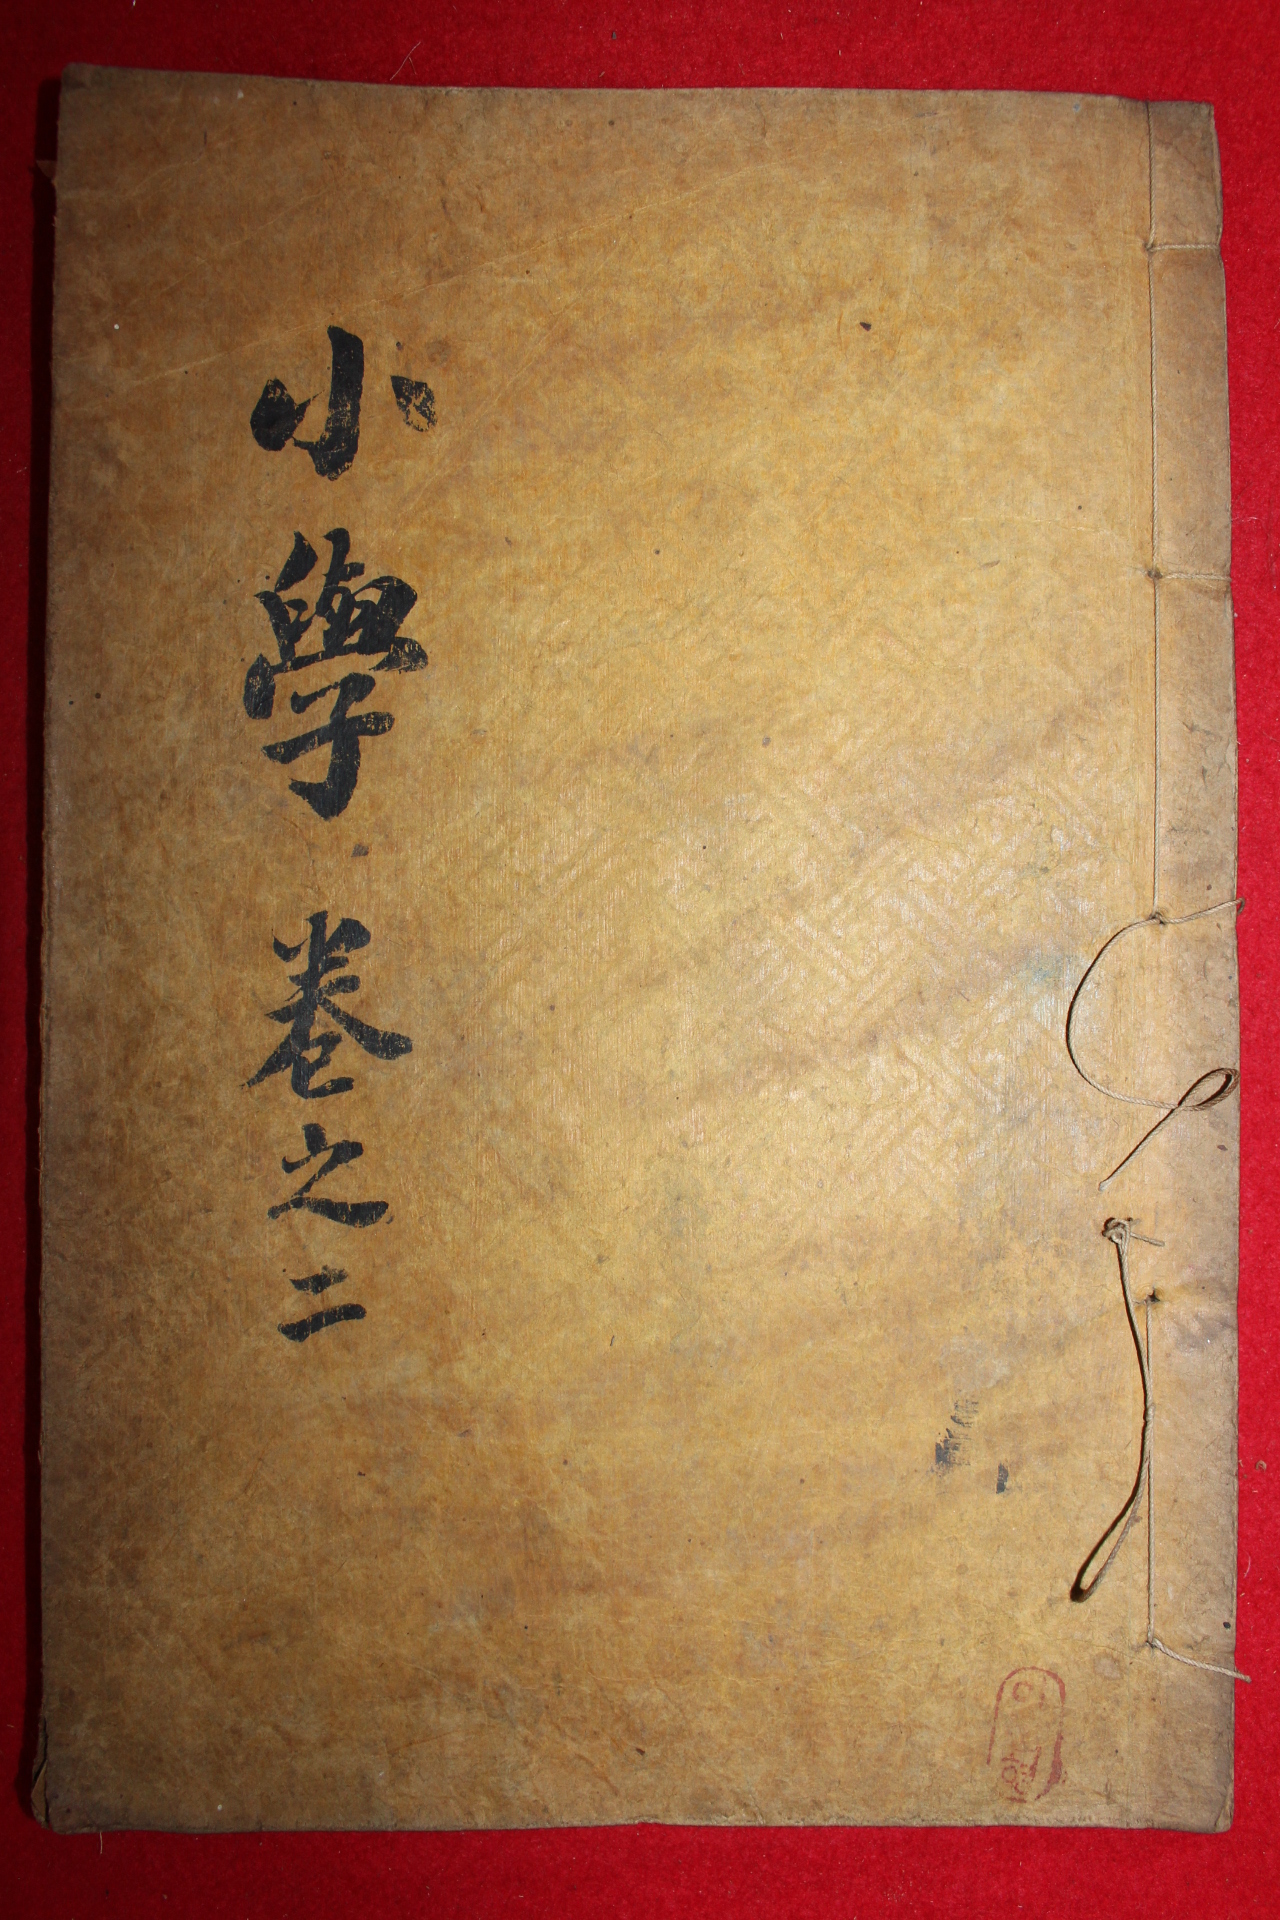 小學 卷之二